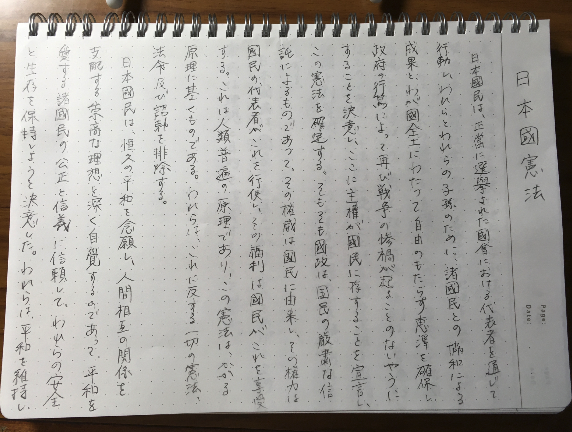 日本國憲法
Page:
Date:
日本國民は、正当に選挙された國会における代表者を通じて
行動し、われらとわれらの子孫のために、諸國民との協和による
成果と、わが國全土にわたって自由のもたらす恵澤を確保し、
政府の行為によって再び戦争の惨禍が起ることのないやうに
することを決意し、ここに主権が國民に存することを宣言し、
この憲法を確定する。そもそも國政は、国民の厳粛な信
託によるものであって、その権威は國民に由来し、その権力は
國民の代表者がこれを行使し、その福利は國民がこれを享受
する。これは人類普遍の原理であり、この憲法は、かかる
原理に基くものである。われらは、これに反する一切の憲法、
法令及び詔勅を排除する。
日本國民は、恒久の平和を念願し、人間相互の関係を
支配する崇高な理想を深く自覚するのであって、平和を
愛する諸國民の公正と信義に信頼して、われらの安全
と生存を保持しようと決意した。われらは、平和を維持し、